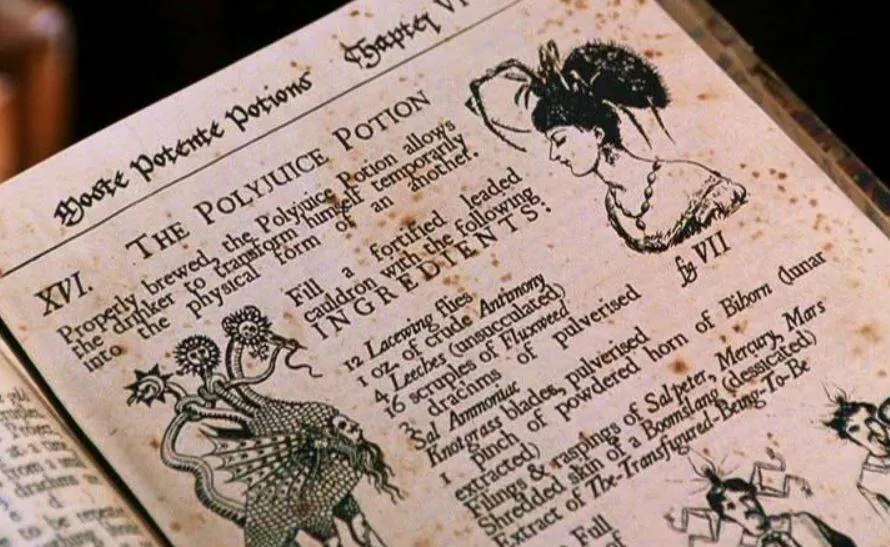 Moste Potente Potions Chapter VI
XVI. THE POLYJUICE POTION
Properly brewed, the Polyjuice Potion allows
the drinker to transform himself temporarily
into the physical form of an another.
Fill a fortified leaded
cauldron with the following
INGREDIENTS:
12 Lacewing flies
1 oz. of crude Antimony
4 Leeches (unsucculated)
16 scruples of Fluxweed
3 drachms of pulverised
Sal Ammoniac
Knotgrass blades, pulverised
1 pinch of powdered horn of Biborn (lunar
extracted)
Filings & raspings of Salpeter, Mercury, Mars
Shredded skin of a Boomslang (dessicated)
Extract of The-Transfigured-Being-To-Be
Full
fig VII
at a tim
from a
drachms
to be